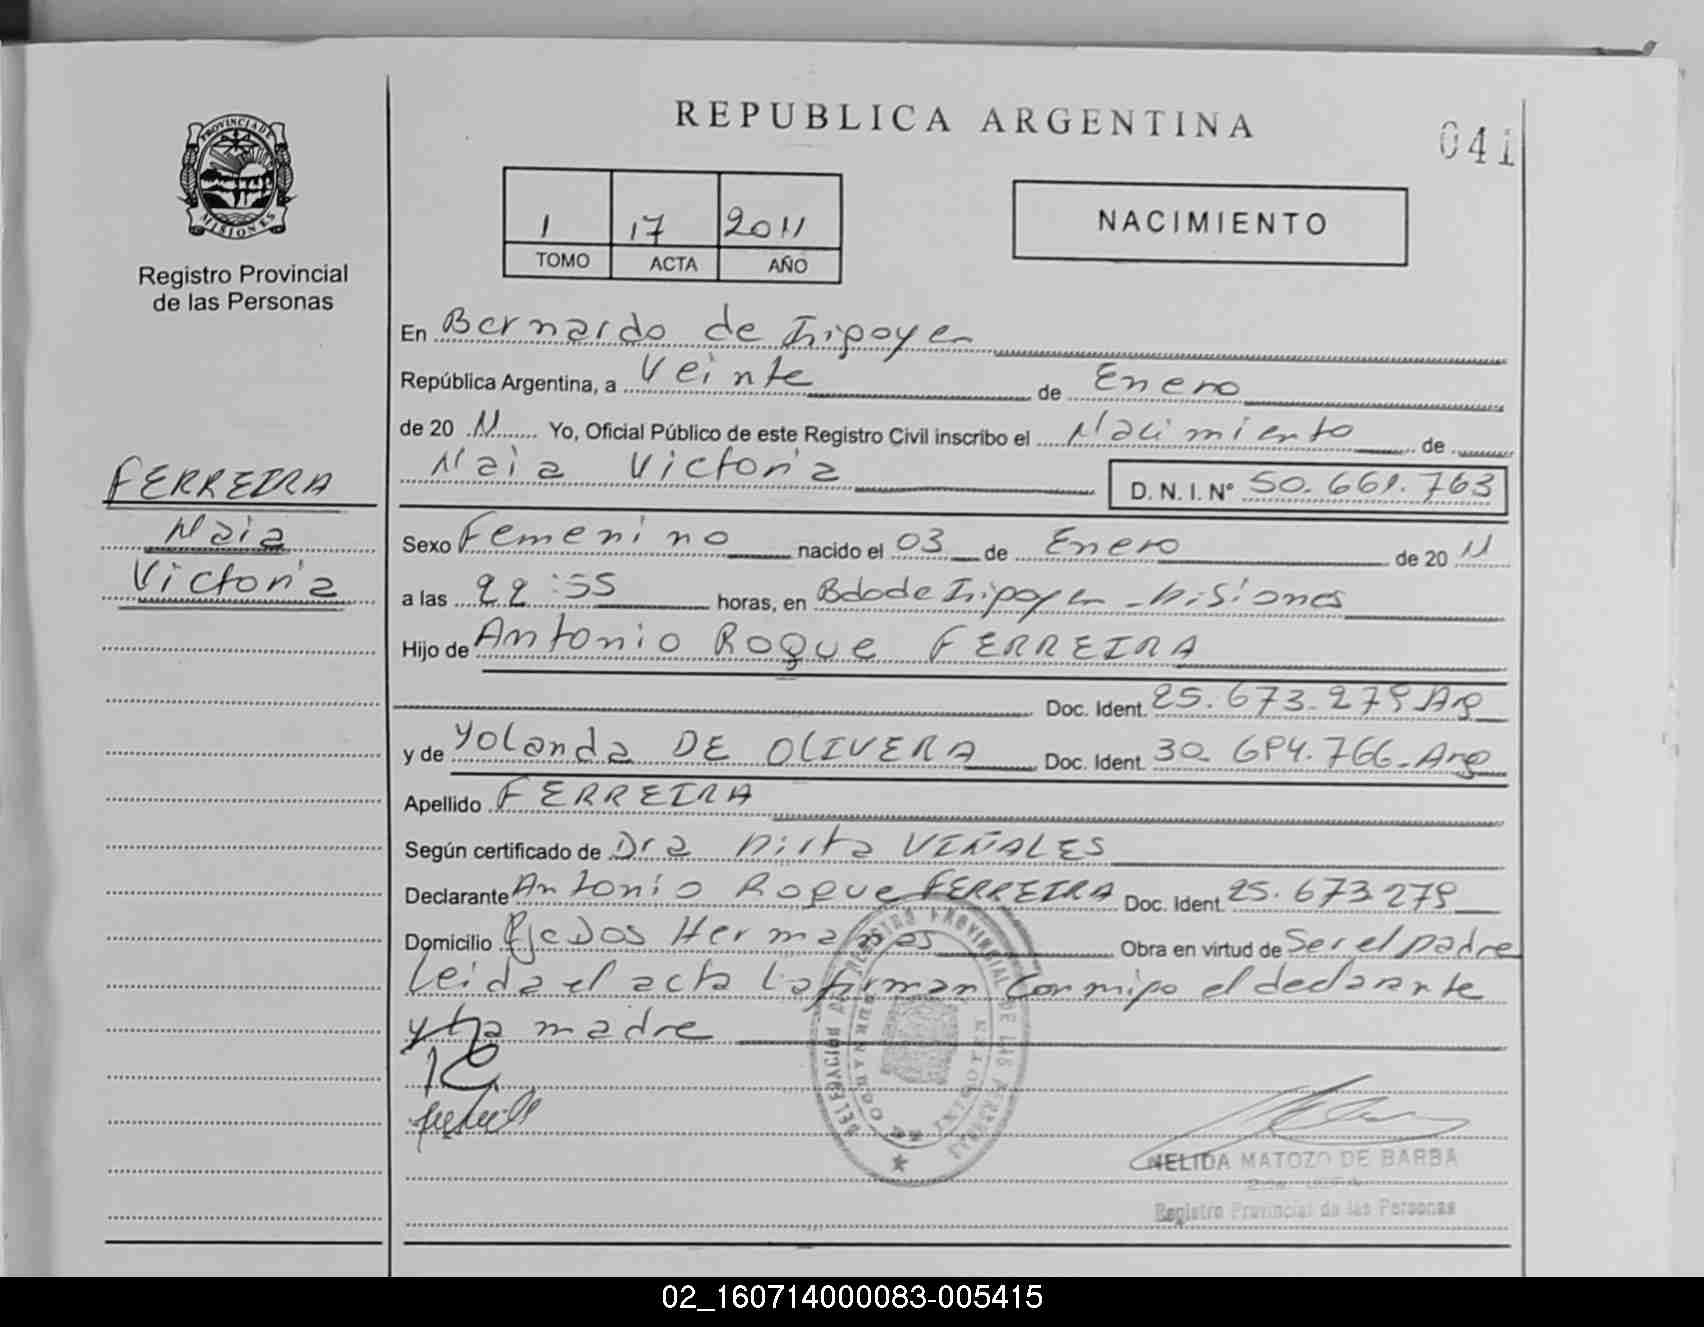 REPUBLICA ARGENTINA
041
PROVINCIA DE
MISIONES
Registro Provincial
de las Personas
1 17 2011
TOMO ACTA AÑO
NACIMIENTO
En Bernardo de Irigoyen
República Argentina, a Veinte de Enero
de 20 11 Yo, Oficial Público de este Registro Civil inscribo el Nacimiento de
Naia Victoria D. N. I. Nº 50.661.763
FERREIRA
Naia
Victoria
Sexo Femenino nacido el 03 de Enero de 20 11
a las 22:55 horas, en Bdo de Irigoyen - Misiones
Hijo de Antonio Roque FERREIRA
Doc. Ident. 25.673.279 Arg
y de Yolanda DE OLIVERA Doc. Ident. 30.684.766 - Arg
Apellido FERREIRA
Según certificado de Dra Mirta VIÑALES
Declarante Antonio Roque FERREIRA Doc. Ident. 25.673.279
Domicilio Pje Dos Hermanas Obra en virtud de Ser el padre
Leida el acta la firman conmigo el declarante
y la madre
NELIDA MATOZO DE BARBA
Registro Provincial de las Personas
02_160714000083-005415